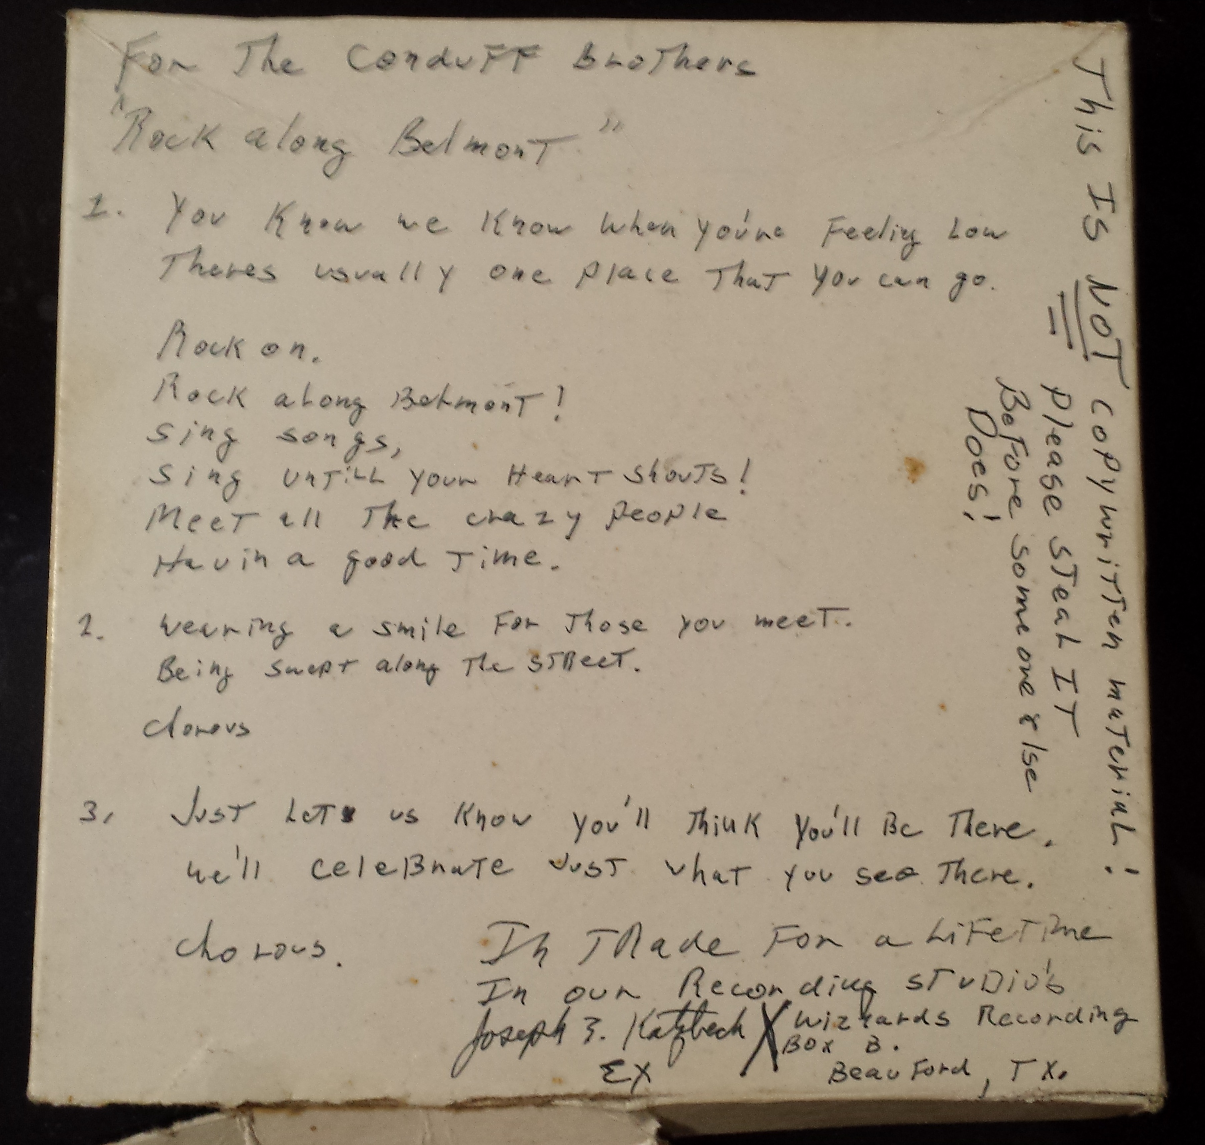 For The Conduff Brothers
"Rock along Belmont"
1. You Know we Know when you're Feeling Low
Theres usually one place That you can go.
Rock on.
Rock along Belmont!
Sing songs,
Sing untill your Heart shouts!
Meet all The crazy people
Havin a good Time.
2. Wearing a smile For Those you meet.
Being swept along The street.
chorous
3, Just Let us Know you'll Think you'll Be There.
We'll celeBrate Just what you see There.
chorous.
In TRade For a LiFeTime
In our Recording sTuDio's
Joseph Z. Katzbeck X Wizzards Recording
Box B.
Ex
BeauFord, TX.
This Is NOT copywritten material!
please steal IT
BeFore someone else
Does!